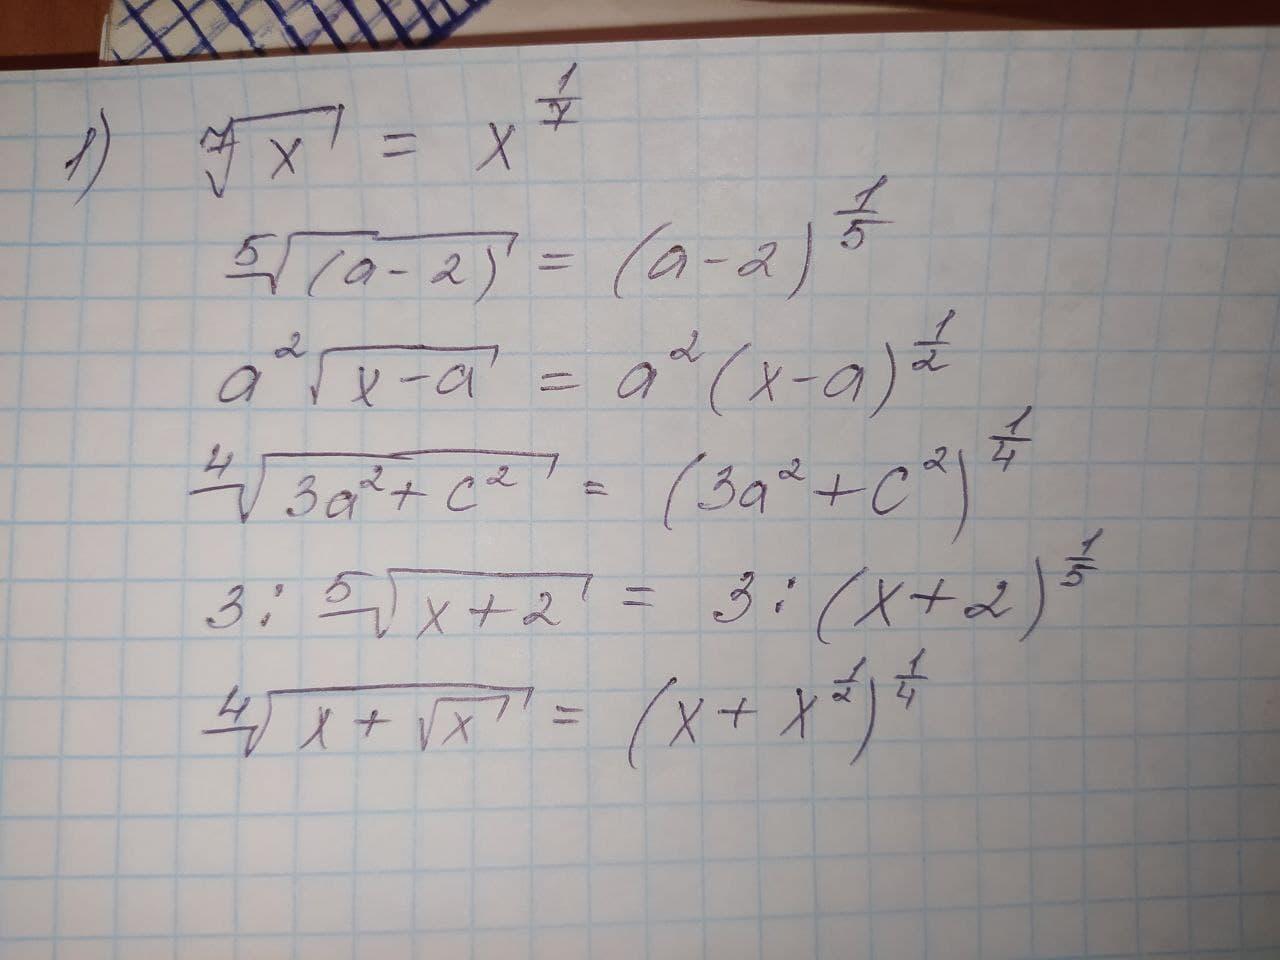 1) ⁷√x = x^(1/7)
⁵√(a-2) = (a-2)^(1/5)
a²√(x-a) = a²(x-a)^(1/2)
⁴√(3a²+c²) = (3a²+c²)^(1/4)
3 : ⁵√(x+2) = 3 : (x+2)^(1/5)
⁴√(x+√x) = (x+x^(1/2))^(1/4)